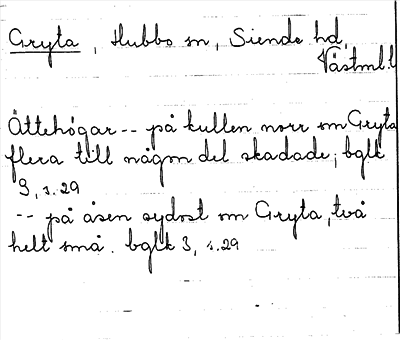 Gryta, Hubbo sn, Siende hd,
Västml.l
Ättehögar -- på kullen norr om Gryta
flera till någon del skadade; bglk
3, s.29
-- på åsen sydost om Gryta, två
helt små. bglk 3, s.29